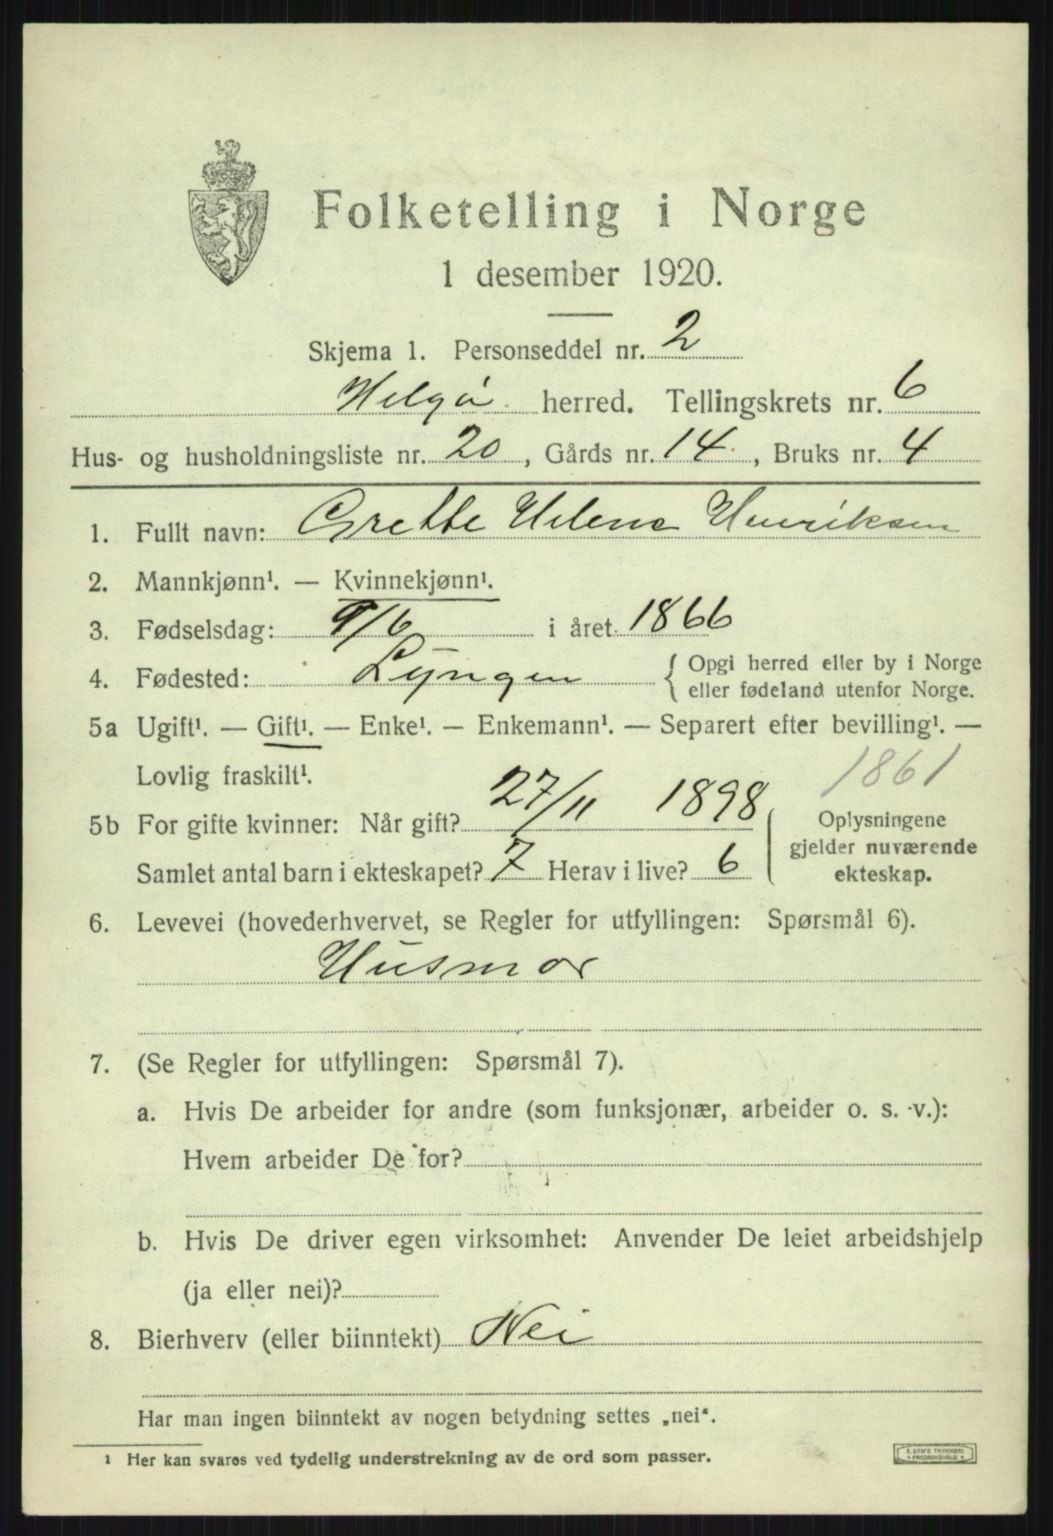 Folketelling i Norge
1 desember 1920.
Skjema 1. Personseddel nr. 2
Helgø herred. Tellingskrets nr. 6
Hus- og husholdningsliste nr. 20, Gårds nr. 14, Bruks nr. 4
1. Fullt navn: Grette Helene Henriksen
2. Mannkjønn¹. — Kvinnekjønn¹.
3. Fødselsdag: 9/6 i året 1866
4. Fødested: Lyngen { Opgi herred eller by i Norge
eller fødeland utenfor Norge.
5a Ugift¹. — Gift¹. — Enke¹. — Enkemann¹. — Separert efter bevilling¹. —
Lovlig fraskilt¹. 1861
5b For gifte kvinner: Når gift? 27/11 1898
Samlet antal barn i ekteskapet? 7 Herav i live? 6
Oplysningene
gjelder nuværende
ekteskap.
6. Levevei (hovederhvervet, se Regler for utfyllingen: Spørsmål 6).
Husmor
7. (Se Regler for utfyllingen: Spørsmål 7).
a. Hvis De arbeider for andre (som funksjonær, arbeider o. s. v.):
Hvem arbeider De for?
b. Hvis De driver egen virksomhet: Anvender De leiet arbeidshjelp
(ja eller nei)?
8. Bierhverv (eller biinntekt) Nei
Har man ingen biinntekt av nogen betydning settes „nei“.
¹ Her kan svares ved tydelig understrekning av de ord som passer.
E. SEM'S TRYKKERI
• FREDRIKSHALD •